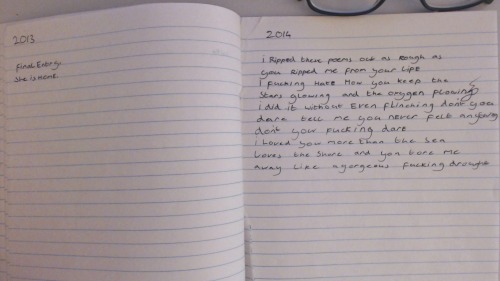 2013
Final Entry:
She is Home
2014
i Ripped these poems out as Rough as
you Ripped me from your Life
I fucking Hate How you keep the
Stars glowing and the oxygen flowing
i did it without Even flinching dont you
dare tell me you never felt anything
dont you fucking dare
i Loved you more than the Sea
Loves the Shore and you tore me
away Like a gorgeous fucking drought